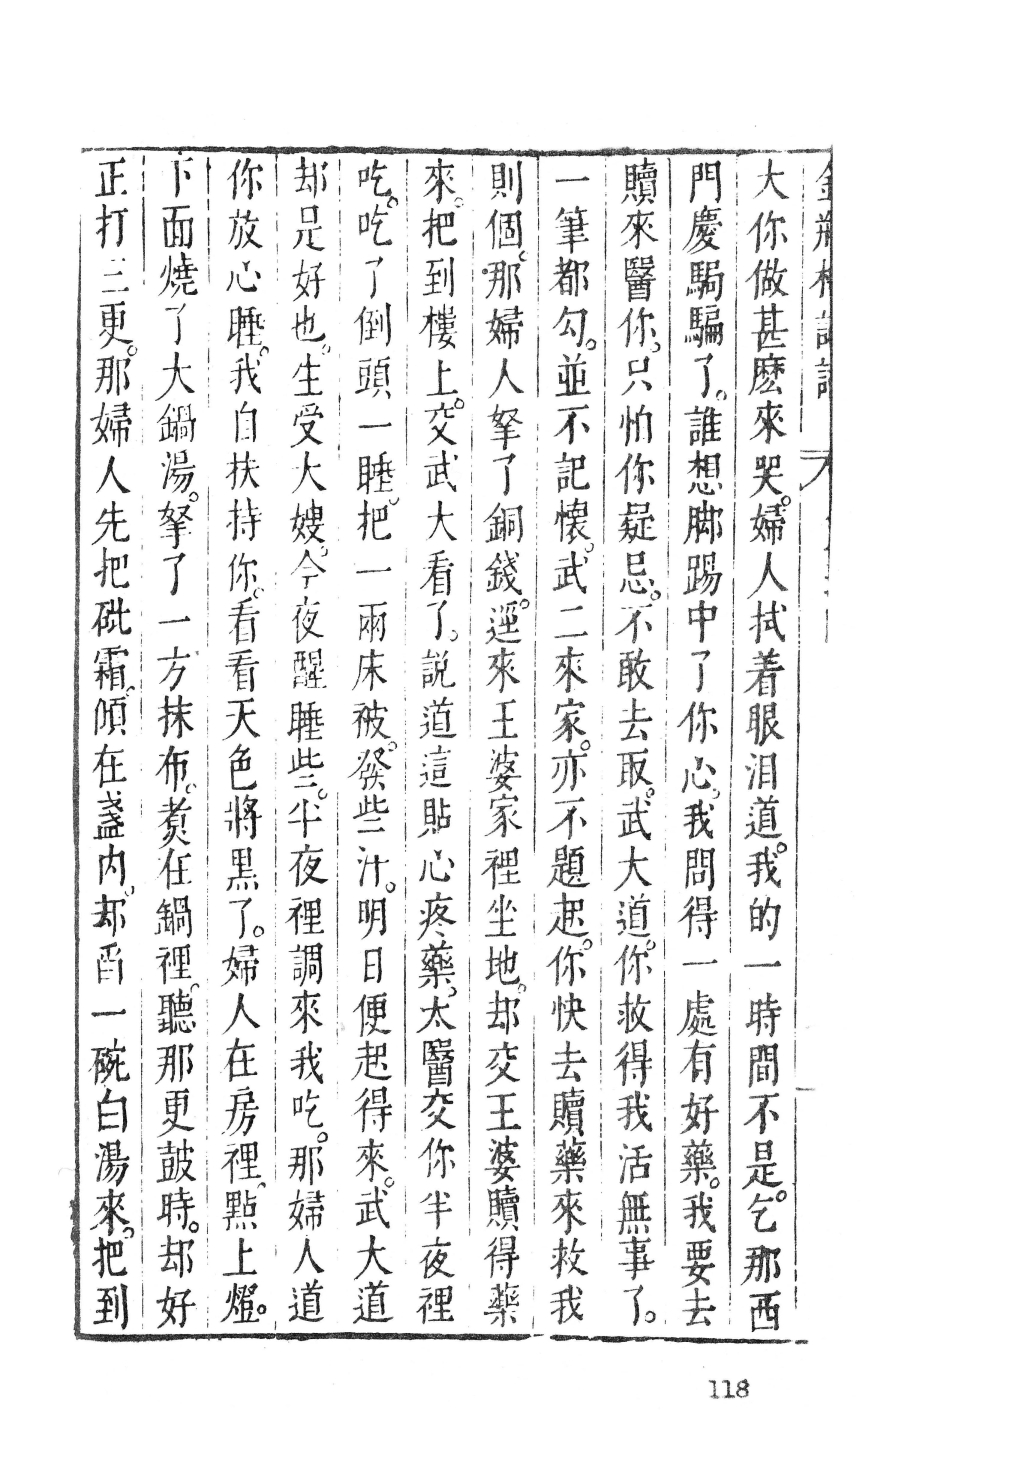 大你做甚麽來哭。婦人拭着眼泪道。我的一時間不是。乞那西
門慶騙了。誰想脚踢中了你心。我問得一處有好藥。我要去
贖來醫你。只怕你疑忌。不敢去取。武大道。你救得我活無事了。
一筆都勾。並不記懷。武二來家。亦不題起。你快去贖藥來救我
則個。那婦人拏了銅錢。逕來王婆家裡坐地。却交王婆贖得藥
來。把到樓上。交武大看了。説道這貼心疼藥。太醫交你半夜裡
吃。吃了倒頭一睡。把一兩床被。發些汁。明日便起得來。武大道
却是好也。生受大嫂。今夜醒睡些。半夜裡調來我吃。那婦人道
你放心睡。我自扶持你。看看天色將黑了。婦人在房裡。點上燈。
下面燒了大鍋湯。拏了一方抹布。煑在鍋裡。聽那更皷時。却好
正打三更。那婦人先把砒霜。傾在盞内。却舀一碗白湯來。把到
118